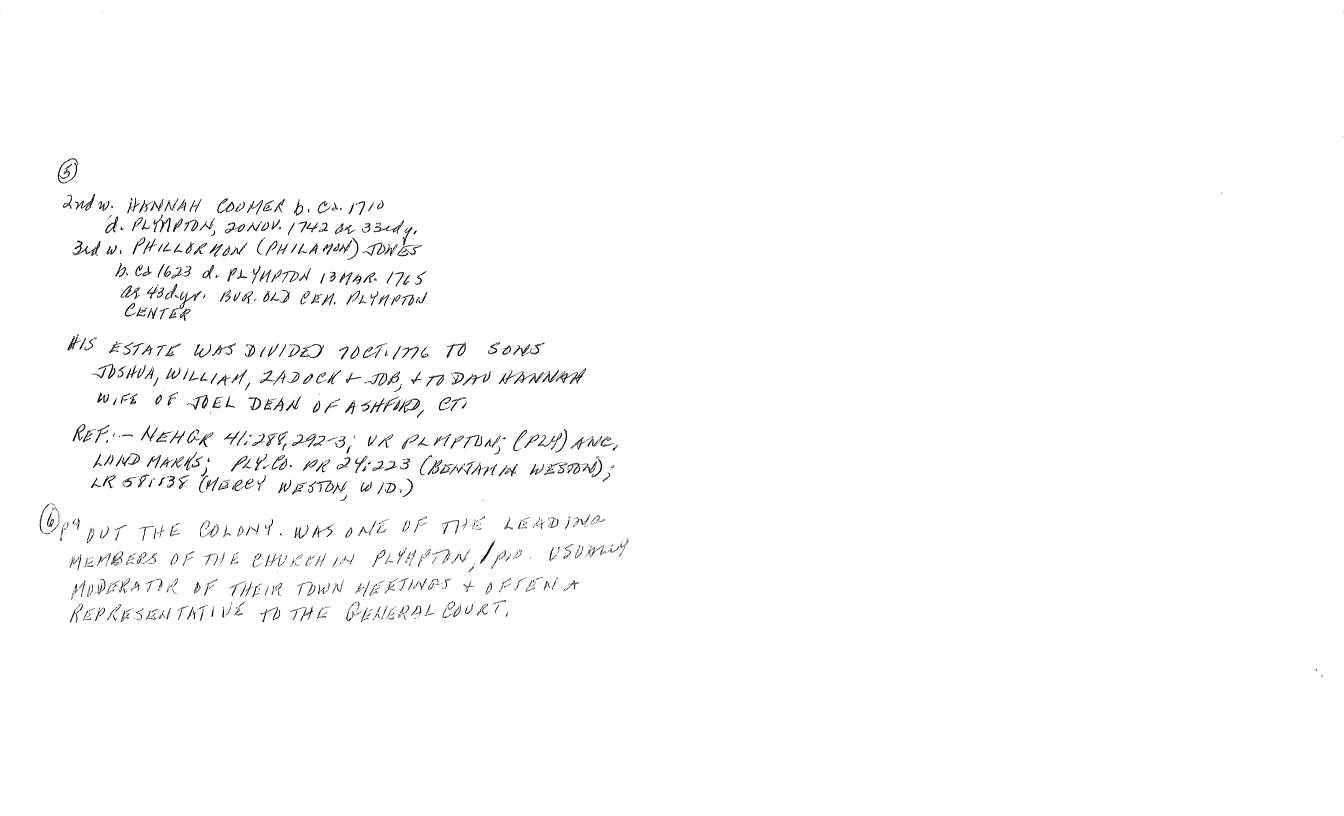 5
2nd w. HANNAH COOMER b. ca. 1710
d. PLYMPTON, 20 NOV. 1742 ae 33rd y.
3rd w. PHILLERMON (PHILAMON) JONES
b. ca 1623 d. PLYMPTON 13 MAR. 1765
ae 43d yr. BUR. OLD CEM. PLYMPTON
CENTER
HIS ESTATE WAS DIVIDED 7 OCT. 1776 TO SONS
JOSHUA, WILLIAM, ZADOCK + JOB, + TO DAU HANNAH
WIFE OF JOEL DEAN OF ASHFORD, CT.
REF.:- NEHGR 41:288, 292-3; VR PLYMPTON; (PLY) ANC.
LAND MARKS; PLY. CO. PR 24:223 (BENJAMIN WESTON);
LR (MERCY WESTON, WID.)
6 p9 OUT THE COLONY. WAS ONE OF THE LEADING
MEMBERS OF THE CHURCH IN PLYMPTON, / p10. USUALLY
MODERATOR OF THEIR TOWN MEETINGS + OFTEN A
REPRESENTATIVE TO THE GENERAL COURT.